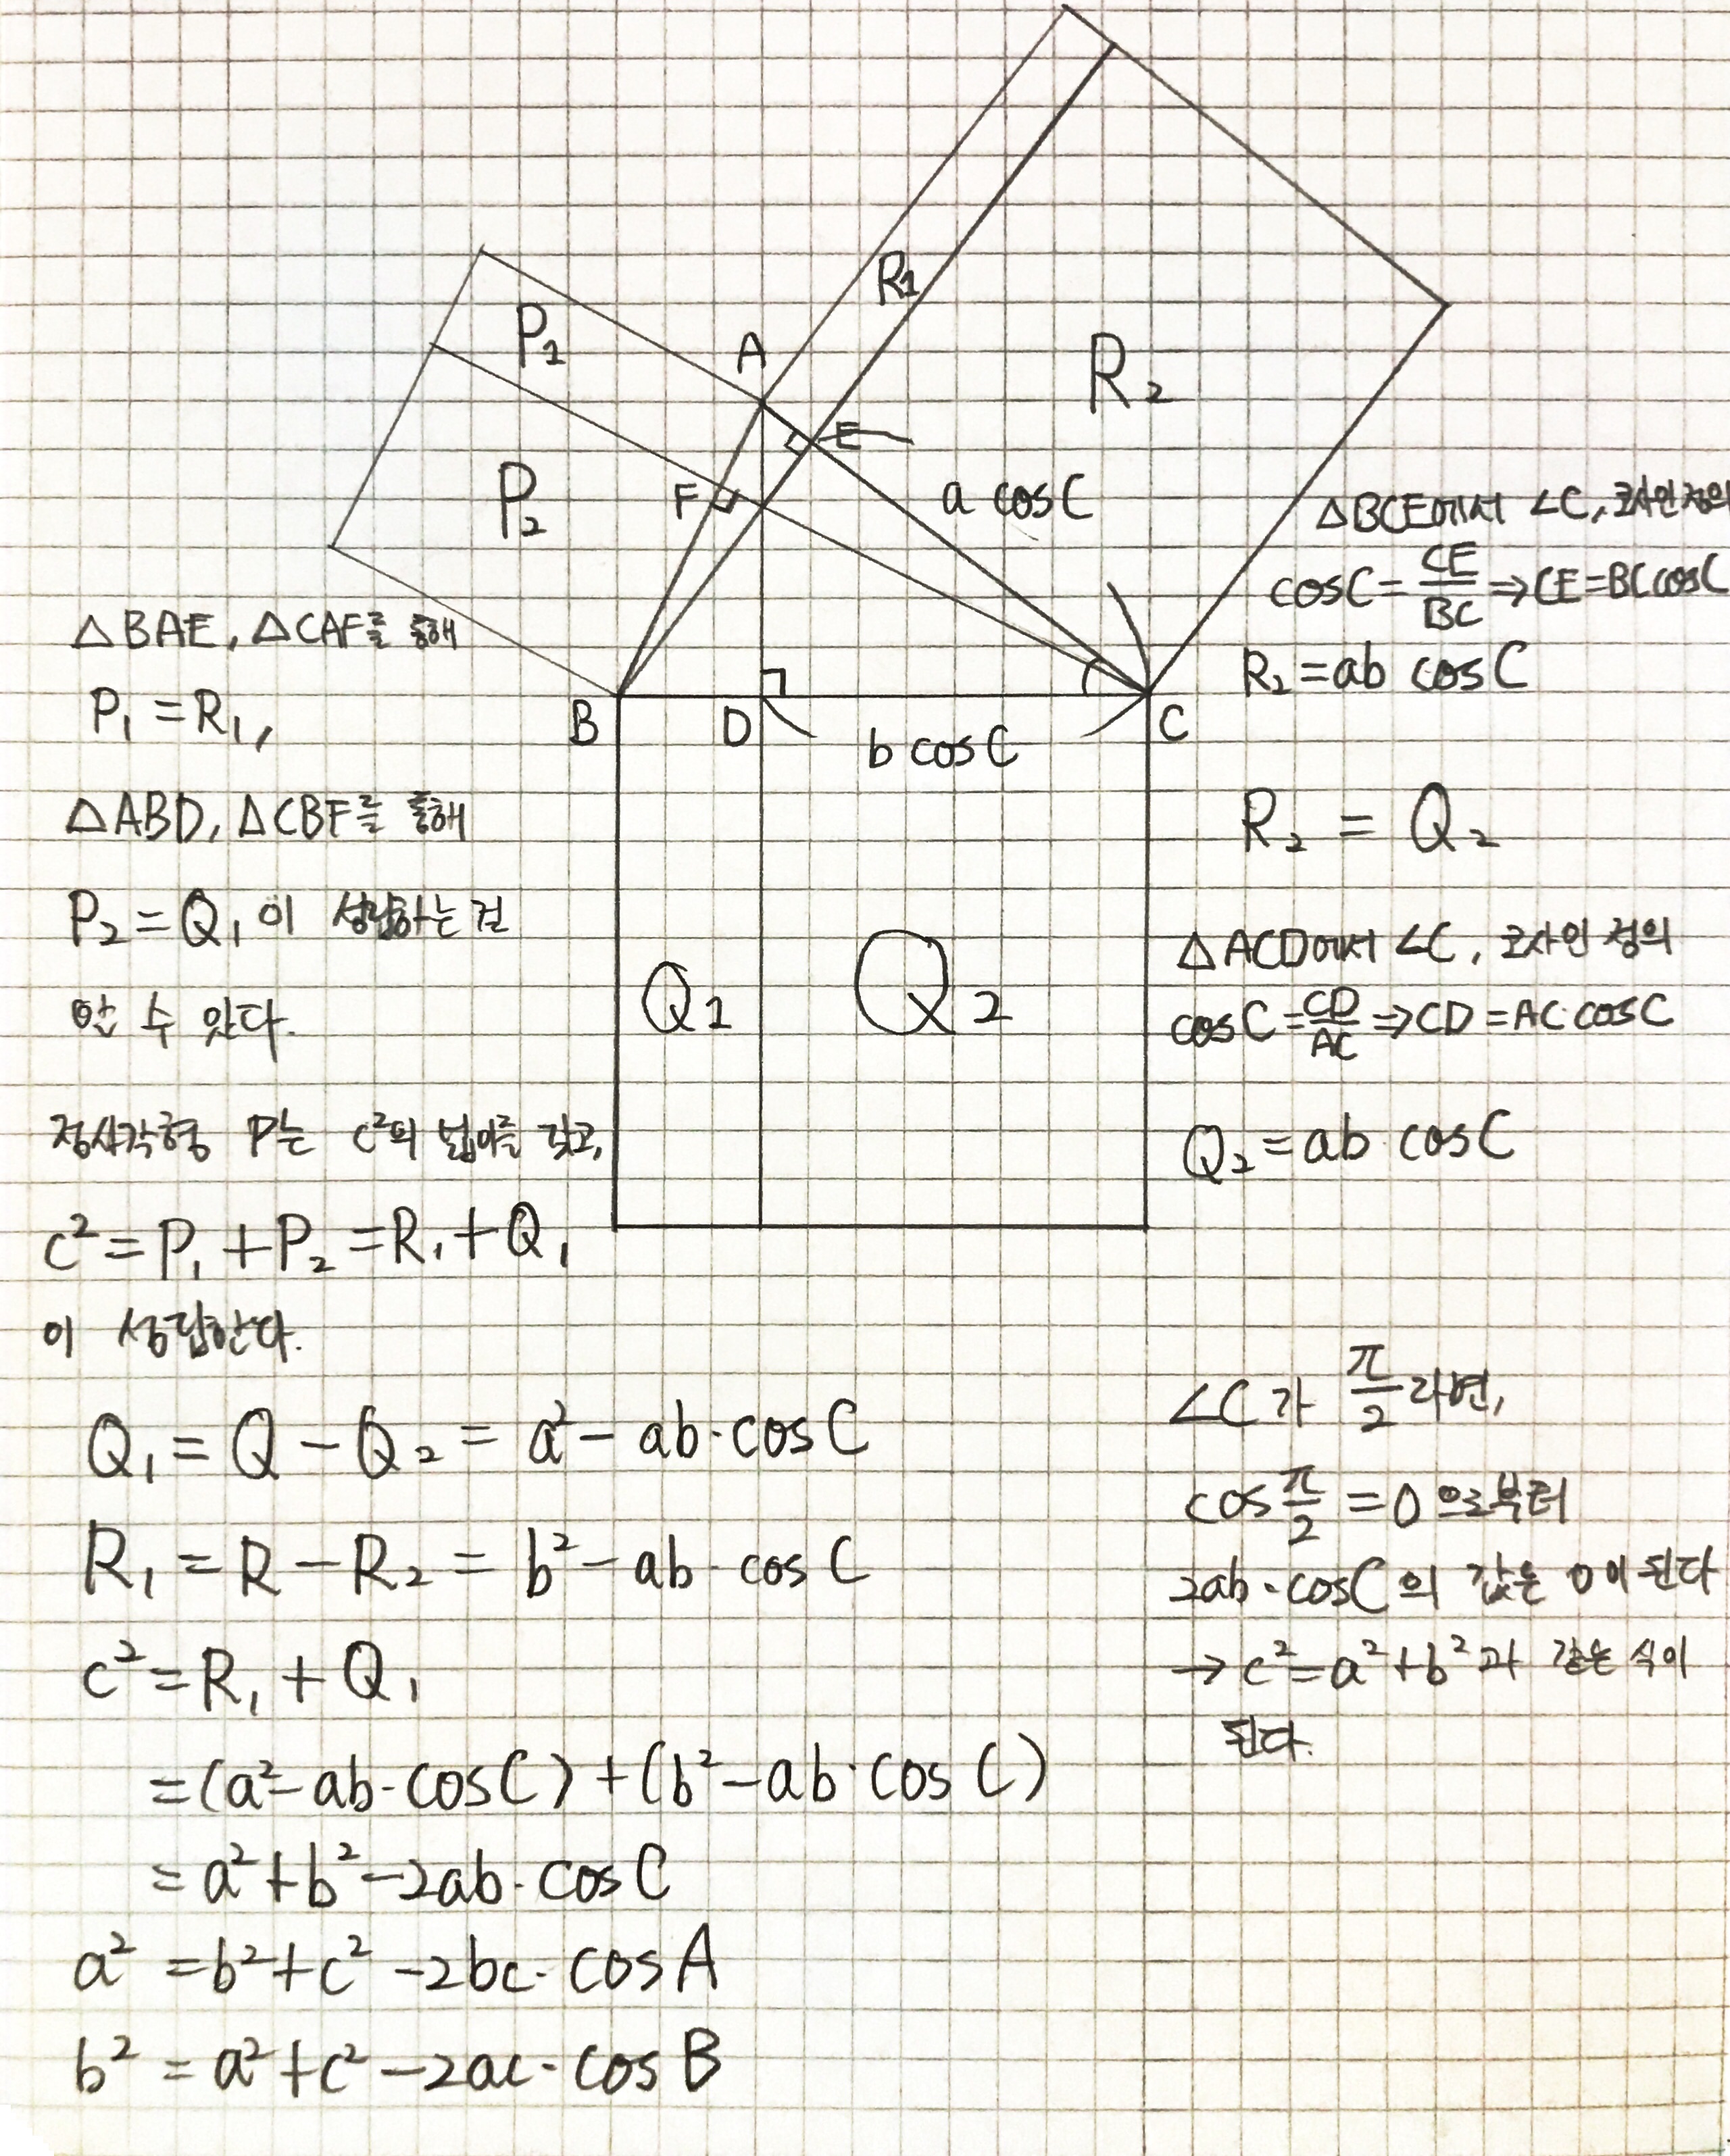 R1
P1
A
R2
E
P2
F
a cosC
△BCE에서 ∠C, 코사인 정의
cosC = CE/BC ⇒ CE = BC cosC
△BAE, △CAF를 통해
R2 = ab cosC
P1 = R1,
B
D
C
b cosC
△ABD, △CBF를 통해
R2 = Q2
P2 = Q1 이 성립하는 걸
△ACD에서 ∠C, 코사인 정의
Q1
Q2
알 수 있다.
cosC = CD/AC ⇒ CD = AC·cosC
정사각형 P는 c²의 넓이를 갖고,
Q2 = ab·cosC
c² = P1 + P2 = R1 + Q1
이 성립한다.
∠C가 π/2라면,
Q1 = Q − Q2 = a² − ab·cosC
cos π/2 = 0 으로부터
R1 = R − R2 = b² − ab·cosC
2ab·cosC의 값은 0이 된다
c² = R1 + Q1
→ c² = a² + b² 과 같은 식이
된다.
= (a² − ab·cosC) + (b² − ab·cosC)
= a² + b² − 2ab·cosC
a² = b² + c² − 2bc·cosA
b² = a² + c² − 2ac·cosB